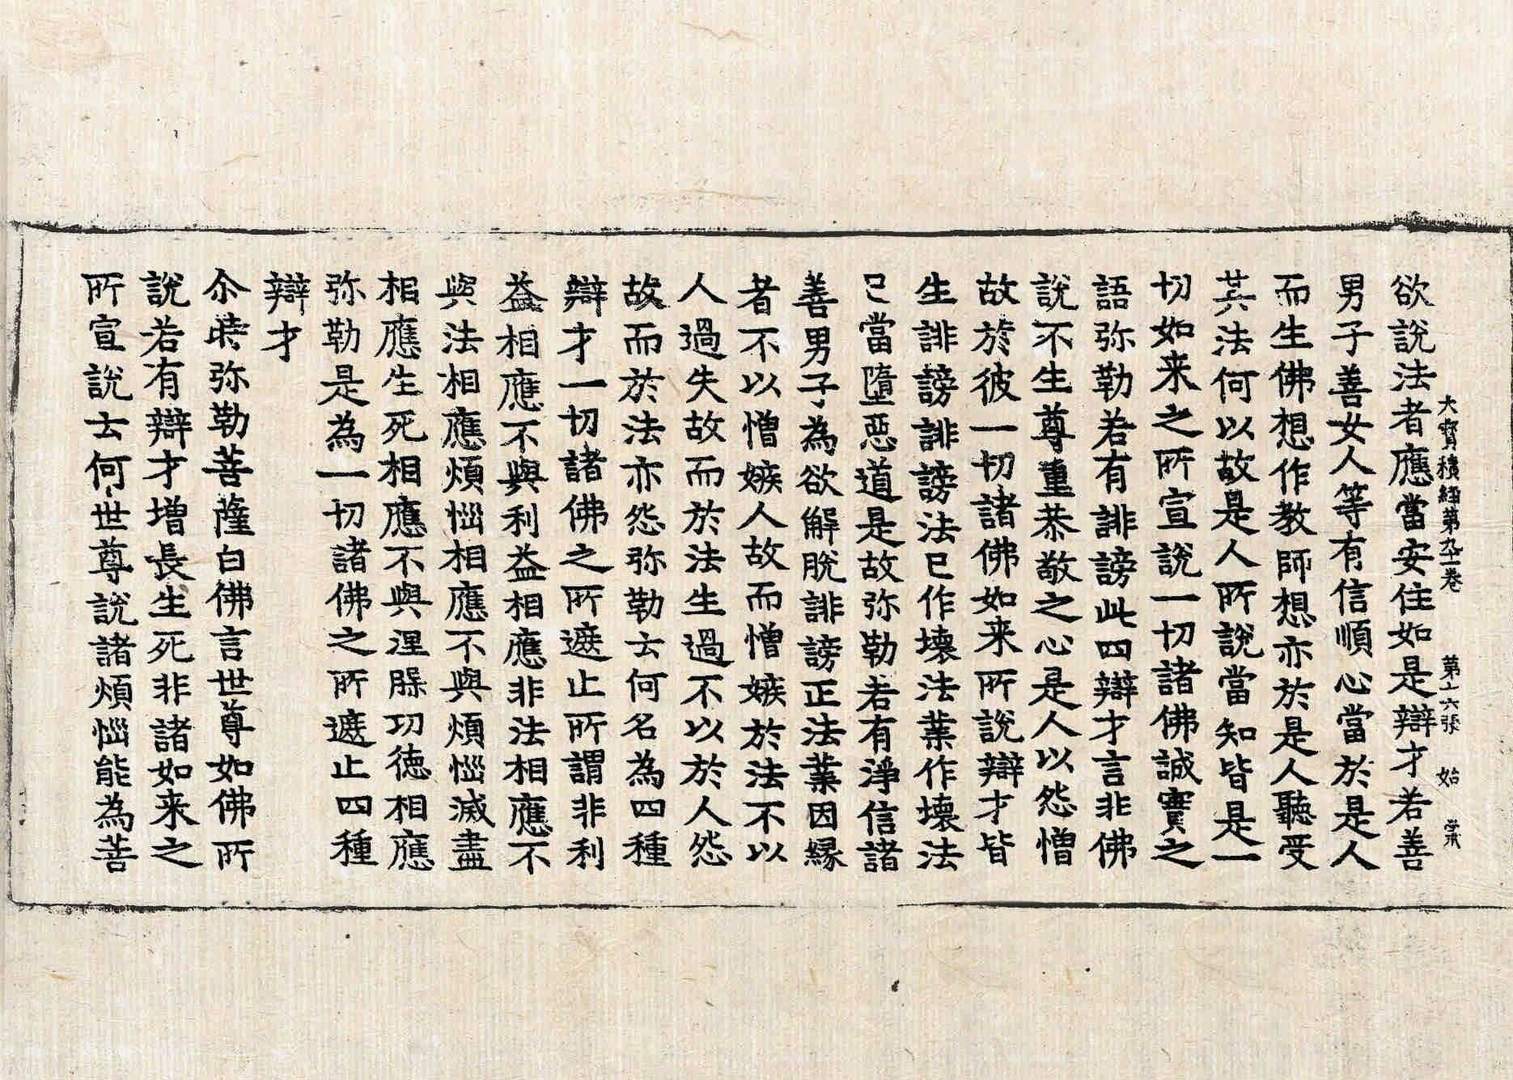 大寶積經第九十一卷 第十六張 始
欲說法者應當安住如是辯才若善
男子善女人等有信順心當於是人
而生佛想作教師想亦於是人聽受
其法何以故是人所說當知皆是一
切如来之所宣說一切諸佛誠實之
語弥勒若有誹謗此四辯才言非佛
說不生尊重恭敬之心是人以怨憎
故於彼一切諸佛如来所說辯才皆
生誹謗誹謗法已作壞法業作壞法
已當墮惡道是故弥勒若有淨信諸
善男子為欲解脫誹謗正法業因緣
者不以憎嫉人故而憎嫉於法不以
人過失故而於法生過不以於人怨
故而於法亦怨弥勒云何名為四種
辯才一切諸佛之所遮止所謂非利
益相應不與利益相應非法相應不
與法相應煩惱相應不與煩惱滅盡
相應生死相應不與涅槃功德相應
弥勒是為一切諸佛之所遮止四種
辯才
尒時弥勒菩薩白佛言世尊如佛所
說若有辯才增長生死非諸如来之
所宣說云何世尊說諸煩惱能為菩